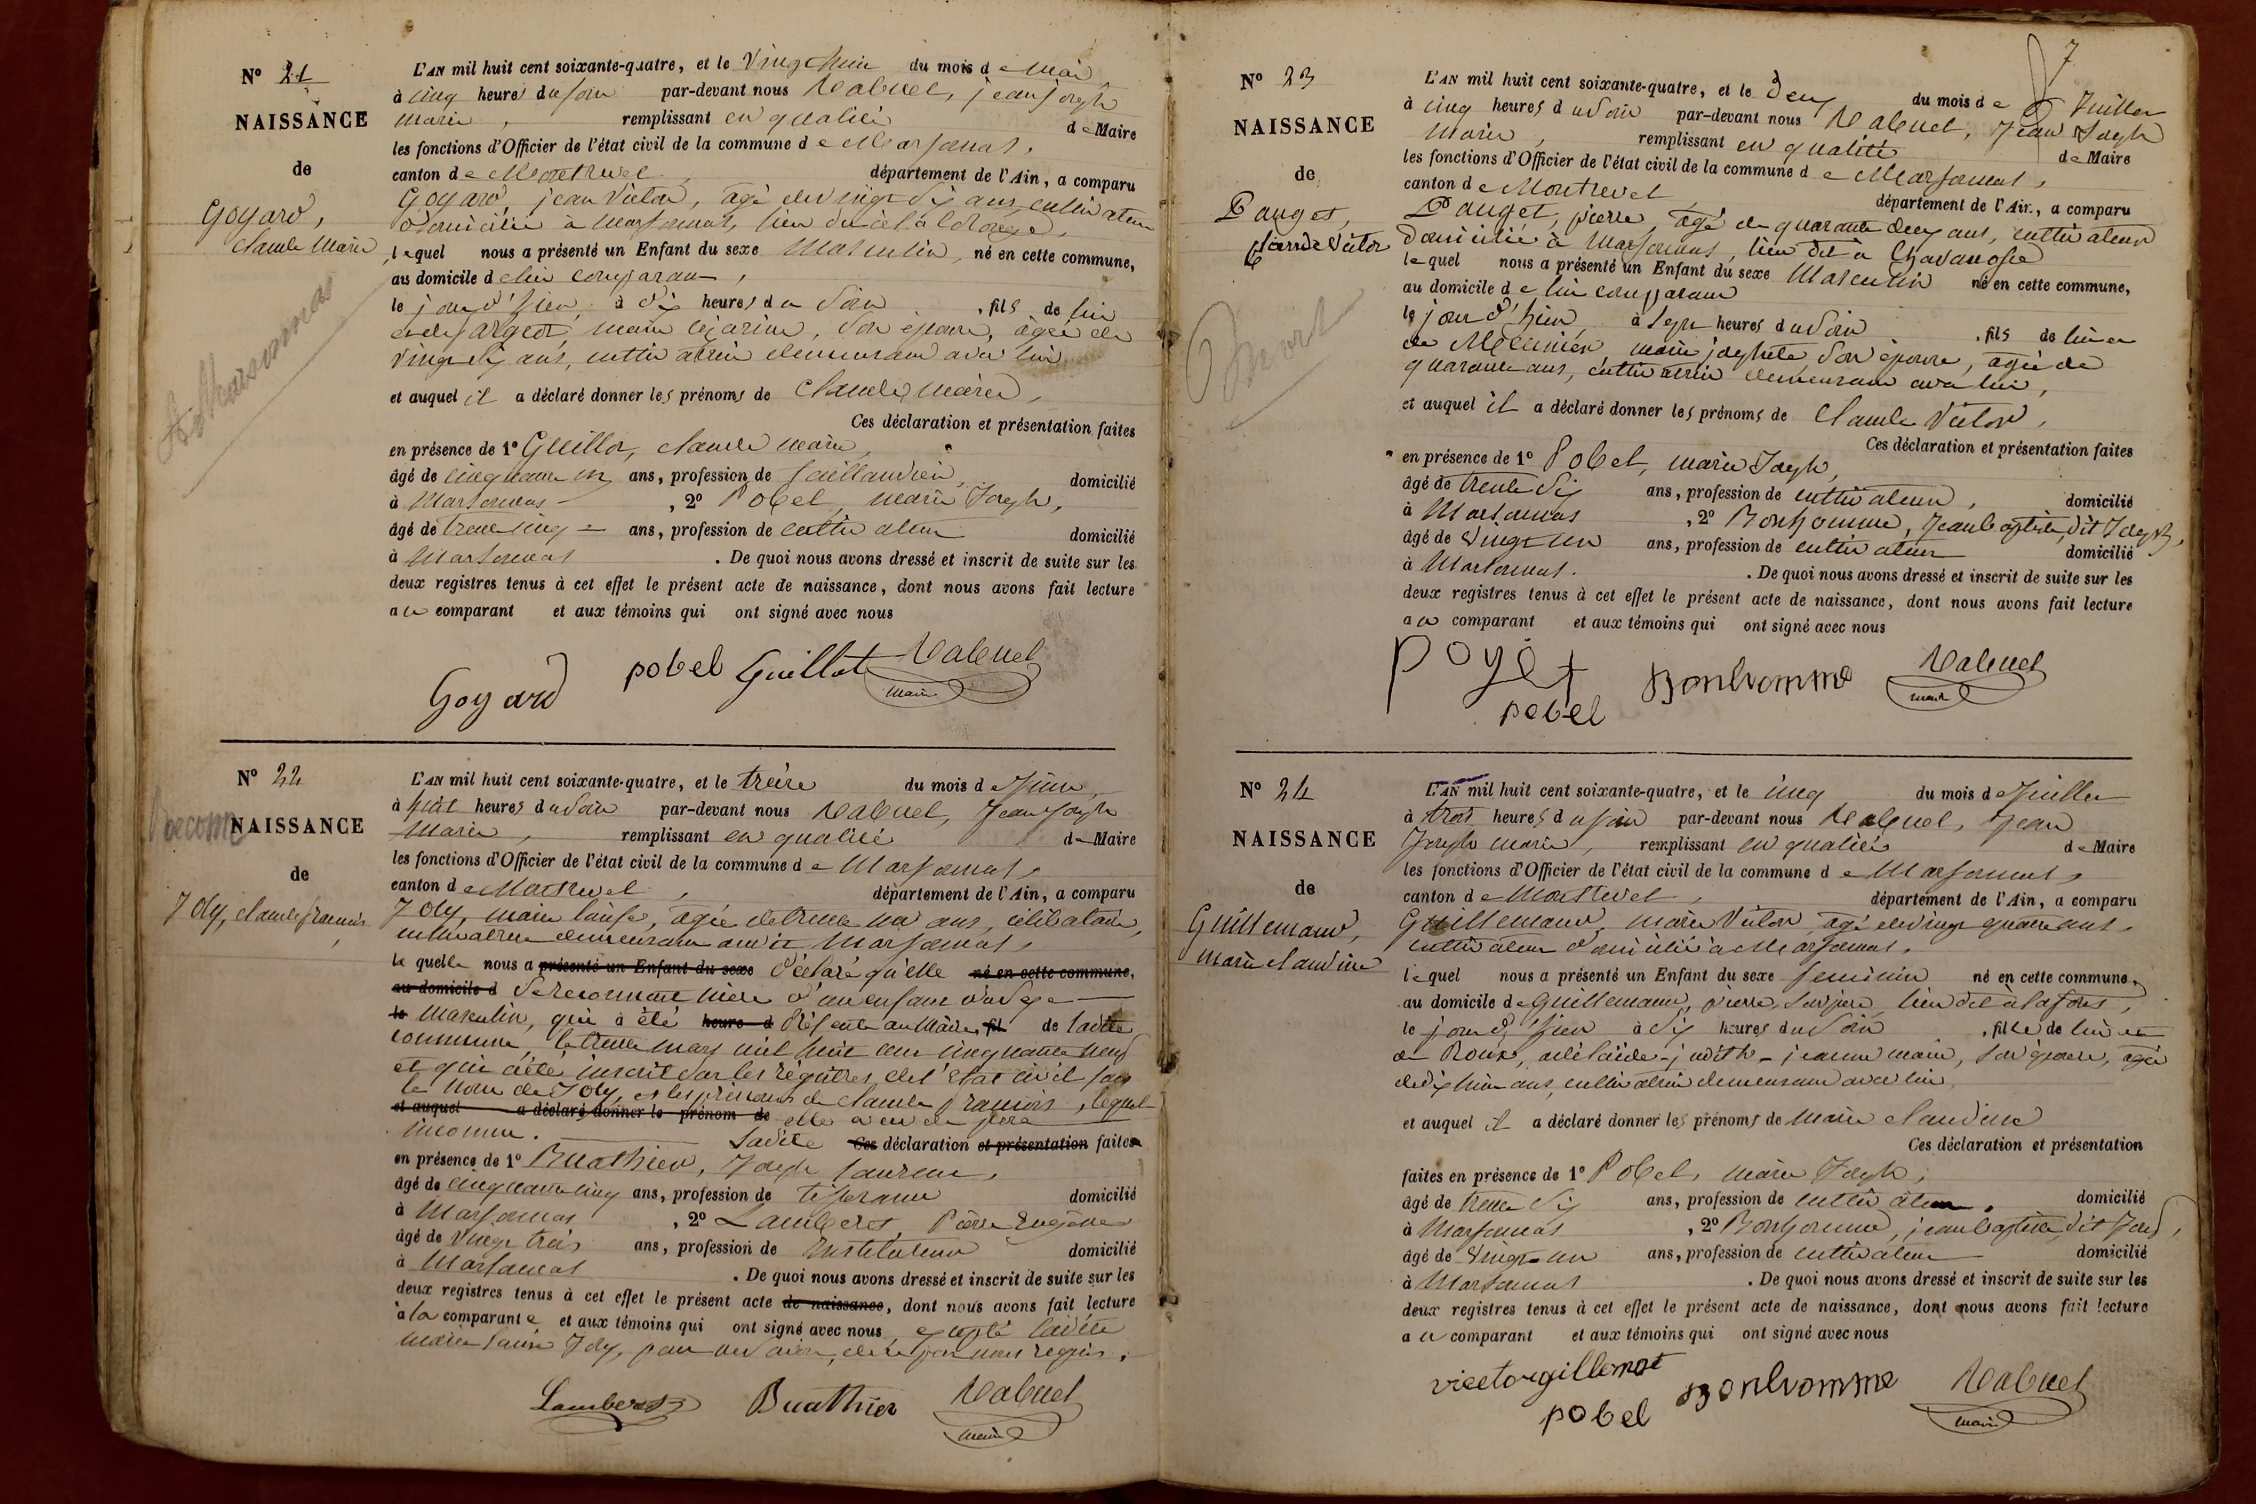 N° 21
NAISSANCE
de
Goyard,
claude Marie
L'AN mil huit cent soixante-quatre, et le vingt huit du mois de Mai
à cinq heures du soir par-devant nous Rabuel, jean joseph
marie, remplissant en qualité de Maire
les fonctions d'Officier de l'état civil de la commune de Marsonnas,
canton de Montrevel, département de l'Ain, a comparu
Goyard, jean Victor, âgé de vingt six ans, cultivateur
domicilié à marsonnas, lieu dit à la
lequel nous a présenté un Enfant du sexe Masculin, né en cette commune,
au domicile de lui comparant,
le jour d'hier, à dix heures du soir, fils de lui
et de marie, son épouse, âgée de
vingt six ans, cultivatrice demeurant avec lui
et auquel il a déclaré donner les prénoms de claude marie,
Ces déclaration et présentation faites
en présence de 1° Guillot, claude marie,
âgé de cinquante un ans, profession de taillandier, domicilié
à Marsonnas, 2° Pobel, marie Joseph,
âgé de trente cinq ans, profession de cultivateur domicilié
à Marsonnas. De quoi nous avons dressé et inscrit de suite sur les
deux registres tenus à cet effet le présent acte de naissance, dont nous avons fait lecture
au comparant et aux témoins qui ont signé avec nous
Goyard pobel Guillot Rabuel
maire
N° 22
NAISSANCE
de
Joly, claude françois
L'AN mil huit cent soixante-quatre, et le treize du mois de Juin,
à huit heures du soir par-devant nous Rabuel, Jean Joseph
Marie, remplissant en qualité de Maire
les fonctions d'Officier de l'état civil de la commune de Marsonnas,
canton de Montrevel, département de l'Ain, a comparu
Joly, marie louise, âgée de trente un ans, célibataire,
cultivatrice demeurant audit Marsonnas,
laquelle nous a présenté un Enfant du sexe déclaré qu'elle né en cette commune,
au domicile d se reconnait mère d'un enfant du sexe
le Masculin, qui a été heure d présenté au Maire fil de ladite
commune, le trente mars mil huit cent cinquante neuf
et qui a été inscrit sur les régistres de l'état civil sous
le nom de Joly, et les prénoms de claude françois, lequel
et auquel a déclaré donner le prénom de elle a eu de père
inconnu. Ladite Ces déclaration et présentation faites
en présence de 1° Buathier, Joseph laurent,
âgé de cinquante cinq ans, profession de tisserand domicilié
à Marsonnas, 2° Lambert, Pierre Eugène
âgé de vingt trois ans, profession de Instituteur domicilié
à Marsonnas. De quoi nous avons dressé et inscrit de suite sur les
deux registres tenus à cet effet le présent acte de naissance, dont nous avons fait lecture
à la comparante et aux témoins qui ont signé avec nous, excepté ladite
marie louise Joly, pour ne savoir, de ce par nous requis.
Lambert Buathier Rabuel
maire
7
N° 23
NAISSANCE
de
Pauget,
Claude Victor
L'AN mil huit cent soixante-quatre, et le deux du mois de Juillet
à cinq heures du soir par-devant nous Rabuel, Jean Joseph
Marie, remplissant en qualité de Maire
les fonctions d'Officier de l'état civil de la commune de Marsonnas,
canton de Montrevel, département de l'Ain, a comparu
Pauget, pierre, âgé de quarante deux ans, cultivateur
domicilié à Marsonnas, lieu dit à Chavanosse
lequel nous a présenté un Enfant du sexe Masculin né en cette commune,
au domicile de lui comparant
le jour d'hier, à sept heures du soir, fils de lui et
de Meunier marie josephte, son épouse, âgée de
quarante ans, cultivatrice demeurant avec lui,
et auquel il a déclaré donner les prénoms de Claude Victor,
Ces déclaration et présentation faites
en présence de 1° Pobel, marie Joseph,
âgé de trente six ans, profession de cultivateur, domicilié
à Marsonnas, 2° Bonhomme, Jean baptiste, dit Joseph,
âgé de vingt un ans, profession de cultivateur domicilié
à Marsonnas. De quoi nous avons dressé et inscrit de suite sur les
deux registres tenus à cet effet le présent acte de naissance, dont nous avons fait lecture
au comparant et aux témoins qui ont signé avec nous
poyet Bonhomme Rabuel
pobel maire
N° 24
NAISSANCE
de
Guillemaud,
marie claudine
L'AN mil huit cent soixante-quatre, et le cinq du mois de Juillet
à trois heures du soir par-devant nous Rabuel, Jean
Joseph marie, remplissant en qualité de Maire
les fonctions d'Officier de l'état civil de la commune de Marsonnas,
canton de Montrevel, département de l'Ain, a comparu
Guillemaud, marie Victor, âgé de vingt quatre ans,
cultivateur domicilié à Marsonnas,
lequel nous a présenté un Enfant du sexe feminin né en cette commune,
au domicile de Guillemaud, pierre, son père, lieu dit à
le jour d'hier à dix heures du soir, fille de lui et
de Roux, adélaïde-judith-jeanne marie, son épouse, âgée
de dix huit ans, cultivatrice demeurant avec lui,
et auquel il a déclaré donner les prénoms de marie claudine
Ces déclaration et présentation
faites en présence de 1° Pobel, marie Joseph,
âgé de trente six ans, profession de cultivateur, domicilié
à Marsonnas, 2° Bonhomme, jean baptiste, dit Joseph,
âgé de vingt un ans, profession de cultivateur domicilié
à Marsonnas. De quoi nous avons dressé et inscrit de suite sur les
deux registres tenus à cet effet le présent acte de naissance, dont nous avons fait lecture
au comparant et aux témoins qui ont signé avec nous
victor gillemot Bonhomme Rabuel
pobel maire